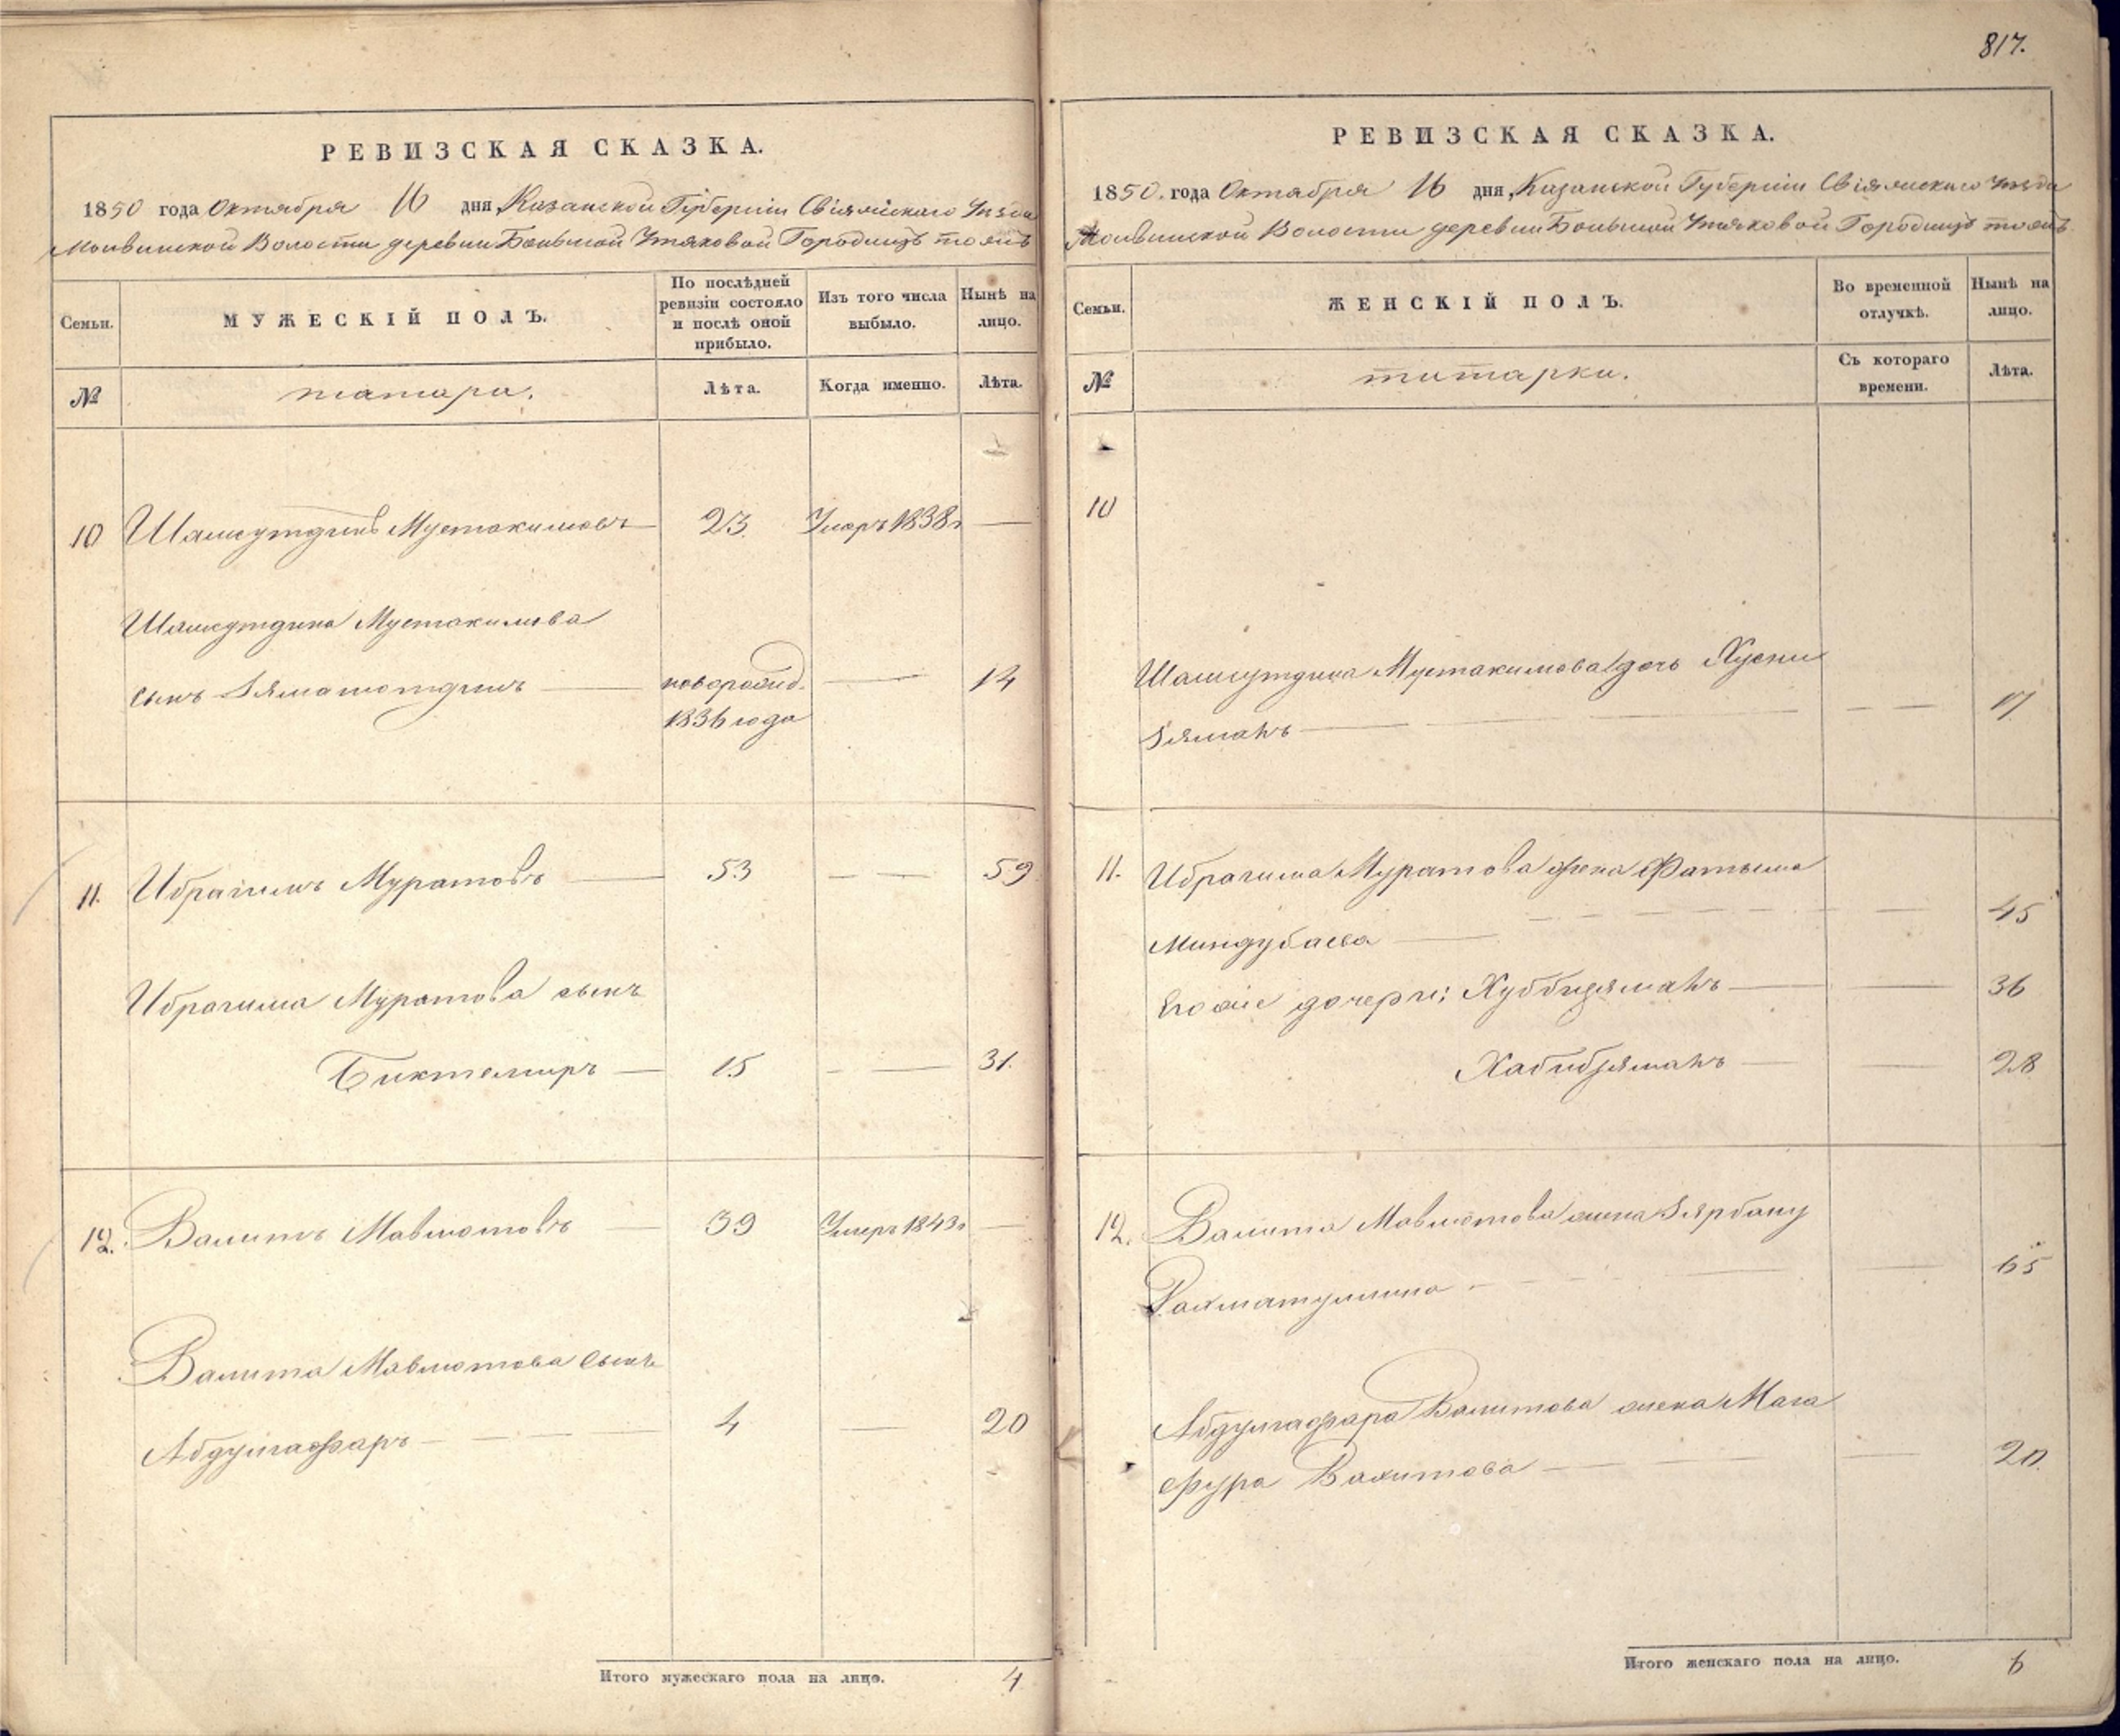 817.
РЕВИЗСКАЯ СКАЗКА.
1850 года Октября 16 дня, Казанской Губерніи Свіяжскаго Уѣзда
Волости деревни Большой Утяковой Городище тожъ
Семьи.
МУЖЕСКІЙ ПОЛЪ.
По послѣдней ревизіи состояло и послѣ оной прибыло.
Изъ того числа выбыло.
Нынѣ на лицо.
№
татары.
Лѣта.
Когда именно.
Лѣта.
10 Шамсутдинъ Мустакимовъ — 23. Умеръ 1838 г —
Шамсутдина Мустакимова
сынъ — новорожд. — 14
1836 года
11. Ибрагимъ Муратовъ — 53 — — 59
Ибрагима Муратова сынъ
Биктемиръ — 15 — — 31.
12. Валитъ Мавлютовъ — 39 Умеръ 1843 г —
Валита Мавлютова сынъ
Абдулгафаръ — — — 4 — 20
Итого мужескаго пола на лицо. 4
РЕВИЗСКАЯ СКАЗКА.
1850. года Октября 16 дня, Казанской Губерніи Свіяжскаго Уѣзда
Волости деревни Большой Утяковой Городище тожъ
Семьи.
ЖЕНСКІЙ ПОЛЪ.
Во временной отлучкѣ.
Нынѣ на лицо.
№
татарки.
Съ котораго времени.
Лѣта.
10
Шамсутдина Мустакимова дочь Хусни
зямалъ — — — — 17
11. Ибрагима Муратова жена Фатыма
Миндубаева — — — 45
Его же дочери: Хуббизямалъ — — 36
Хабибзямалъ — — 28
12. Валита Мавлютова жена Зярбану
Рахматуллина — — — 65
Абдулгафара Валитова жена Мага
фура Вахитова — — — 20.
Итого женскаго пола на лицо. 6